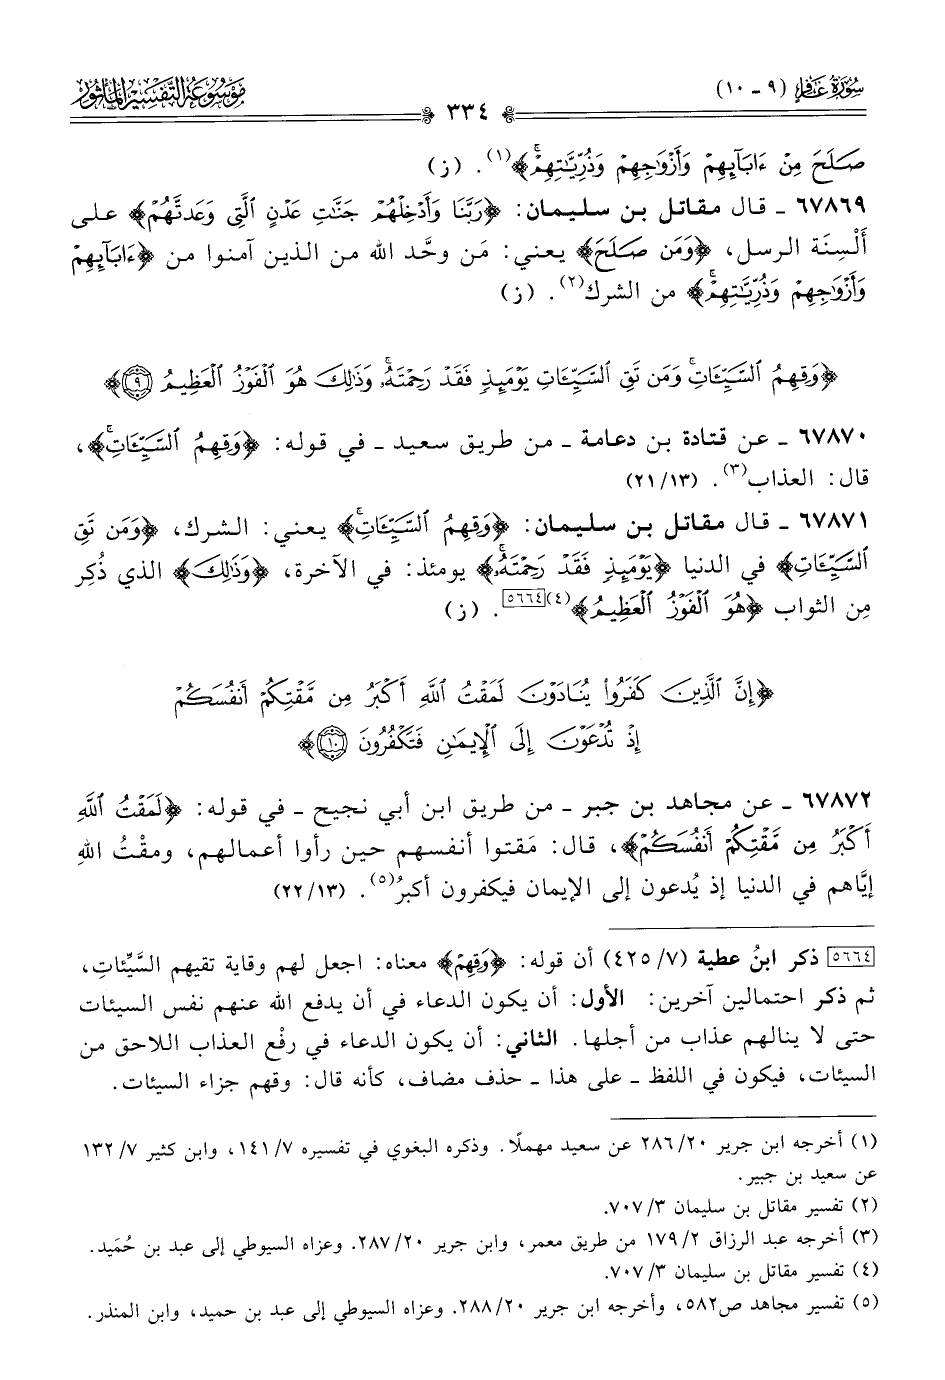 سُورَةُ غَافِرٍ (٩ - ١٠)
٣٣٤
مَوْسُوعَةُ التَّفْسِيرِ المَأْثُورِ
صَلَحَ مِنْ ءَابَآئِهِمْ وَأَزْوَٰجِهِمْ وَذُرِّيَّـٰتِهِمْۚ﴾(١). (ز)
٦٧٨٦٩ ـ قال مقاتل بن سليمان: ﴿رَبَّنَا وَأَدْخِلْهُمْ جَنَّـٰتِ عَدْنٍ ٱلَّتِى وَعَدتَّهُمْ﴾ على
أَلْسِنَة الرسل، ﴿وَمَن صَلَحَ﴾ يعني: مَن وحَّد الله من الذين آمنوا من ﴿ءَابَآئِهِمْ
وَأَزْوَٰجِهِمْ وَذُرِّيَّـٰتِهِمْۚ﴾ من الشرك(٢). (ز)
﴿وَقِهِمُ ٱلسَّيِّـَٔاتِۚ وَمَن تَقِ ٱلسَّيِّـَٔاتِ يَوْمَئِذٍ فَقَدْ رَحِمْتَهُۥۚ وَذَٰلِكَ هُوَ ٱلْفَوْزُ ٱلْعَظِيمُ ٩﴾
٦٧٨٧٠ ـ عن قتادة بن دعامة ـ من طريق سعيد ـ في قوله: ﴿وَقِهِمُ ٱلسَّيِّـَٔاتِۚ﴾،
قال: العذاب(٣). (٢١/١٣)
٦٧٨٧١ ـ قال مقاتل بن سليمان: ﴿وَقِهِمُ ٱلسَّيِّـَٔاتِۚ﴾ يعني: الشرك، ﴿وَمَن تَقِ
ٱلسَّيِّـَٔاتِ﴾ في الدنيا ﴿يَوْمَئِذٍ فَقَدْ رَحِمْتَهُۥۚ﴾ يومئذ: في الآخرة، ﴿وَذَٰلِكَ﴾ الذي ذُكِر
مِن الثواب ﴿هُوَ ٱلْفَوْزُ ٱلْعَظِيمُ﴾(٤)[٥٦٦٤]. (ز)
﴿إِنَّ ٱلَّذِينَ كَفَرُوا۟ يُنَادَوْنَ لَمَقْتُ ٱللَّهِ أَكْبَرُ مِن مَّقْتِكُمْ أَنفُسَكُمْ
إِذْ تُدْعَوْنَ إِلَى ٱلْإِيمَـٰنِ فَتَكْفُرُونَ ١٠﴾
٦٧٨٧٢ ـ عن مجاهد بن جبر ـ من طريق ابن أبي نجيح ـ في قوله: ﴿لَمَقْتُ ٱللَّهِ
أَكْبَرُ مِن مَّقْتِكُمْ أَنفُسَكُمْ﴾، قال: مَقتوا أنفسهم حين رأوا أعمالهم، ومقْتُ اللهِ
إيَّاهم في الدنيا إذ يُدعون إلى الإيمان فيكفرون أكبرُ(٥). (٢٢/١٣)
[٥٦٦٤] ذكر ابنُ عطية (٤٢٥/٧) أن قوله: ﴿وَقِهِمْ﴾ معناه: اجعل لهم وقاية تقيهم السَّيِّئاتِ،
ثم ذكر احتمالين آخرين: الأول: أن يكون الدعاء في أن يدفع الله عنهم نفس السيئات
حتى لا ينالهم عذاب من أجلها. الثاني: أن يكون الدعاء في رفْع العذاب اللاحق من
السيئات، فيكون في اللفظ ـ على هذا ـ حذف مضاف، كأنه قال: وقهم جزاء السيئات.
(١) أخرجه ابن جرير ٢٨٦/٢٠ عن سعيد مهملًا. وذكره البغوي في تفسيره ١٤١/٧، وابن كثير ١٣٢/٧
عن سعيد بن جبير.
(٢) تفسير مقاتل بن سليمان ٧٠٧/٣.
(٣) أخرجه عبد الرزاق ١٧٩/٢ من طريق معمر، وابن جرير ٢٨٧/٢٠. وعزاه السيوطي إلى عبد بن حُمَيد.
(٤) تفسير مقاتل بن سليمان ٧٠٧/٣.
(٥) تفسير مجاهد ص٥٨٢، وأخرجه ابن جرير ٢٨٨/٢٠. وعزاه السيوطي إلى عبد بن حميد، وابن المنذر.